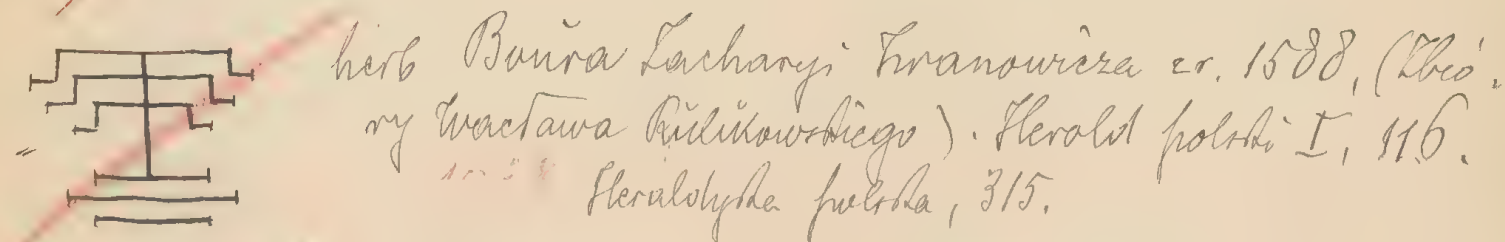 herb Boüra Zacharyi Iwanowicza z r. 1588, (Zbió-
ry Wacława Rulikowskiego). Herold polski I, 116.
Heraldyka polska, 315.